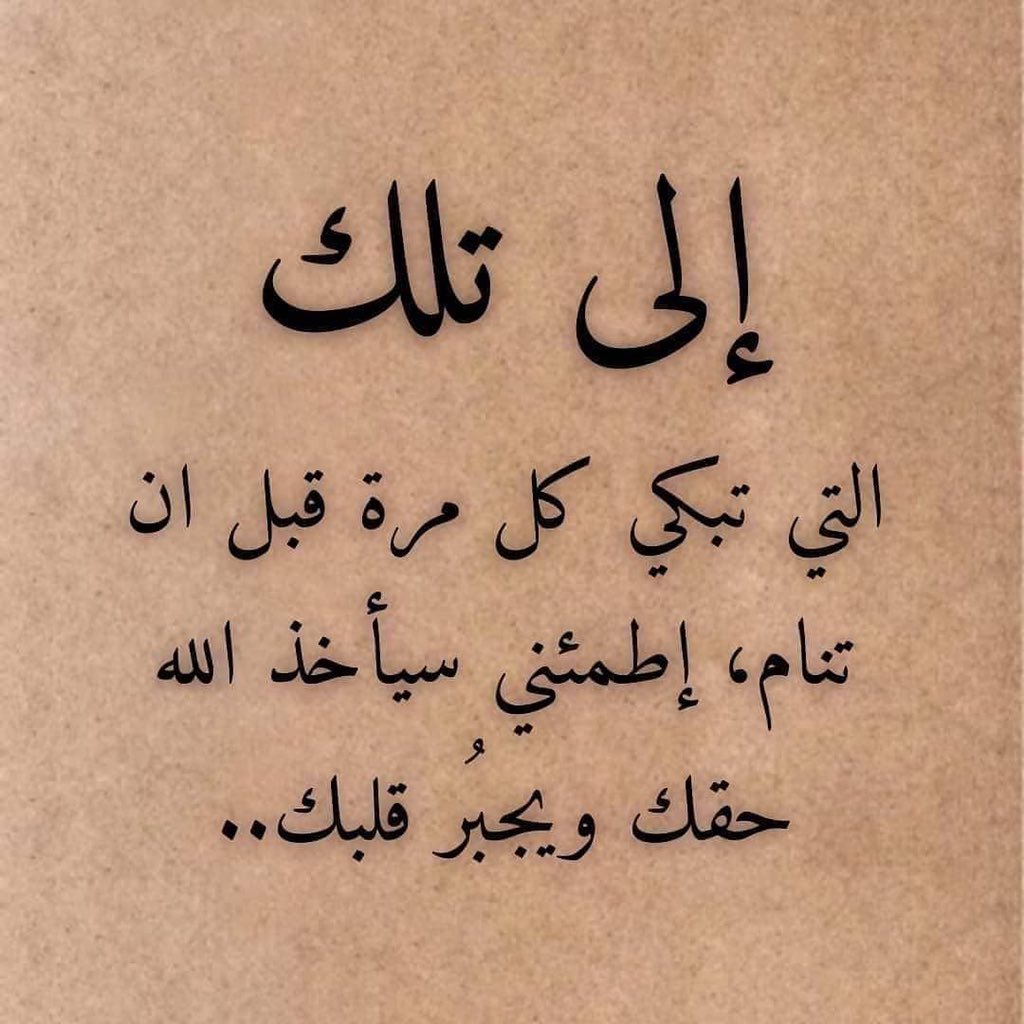 إلى تلك
التي تبكي كل مرة قبل ان
تنام، إطمئني سيأخذ الله
حقك ويجبُر قلبك..